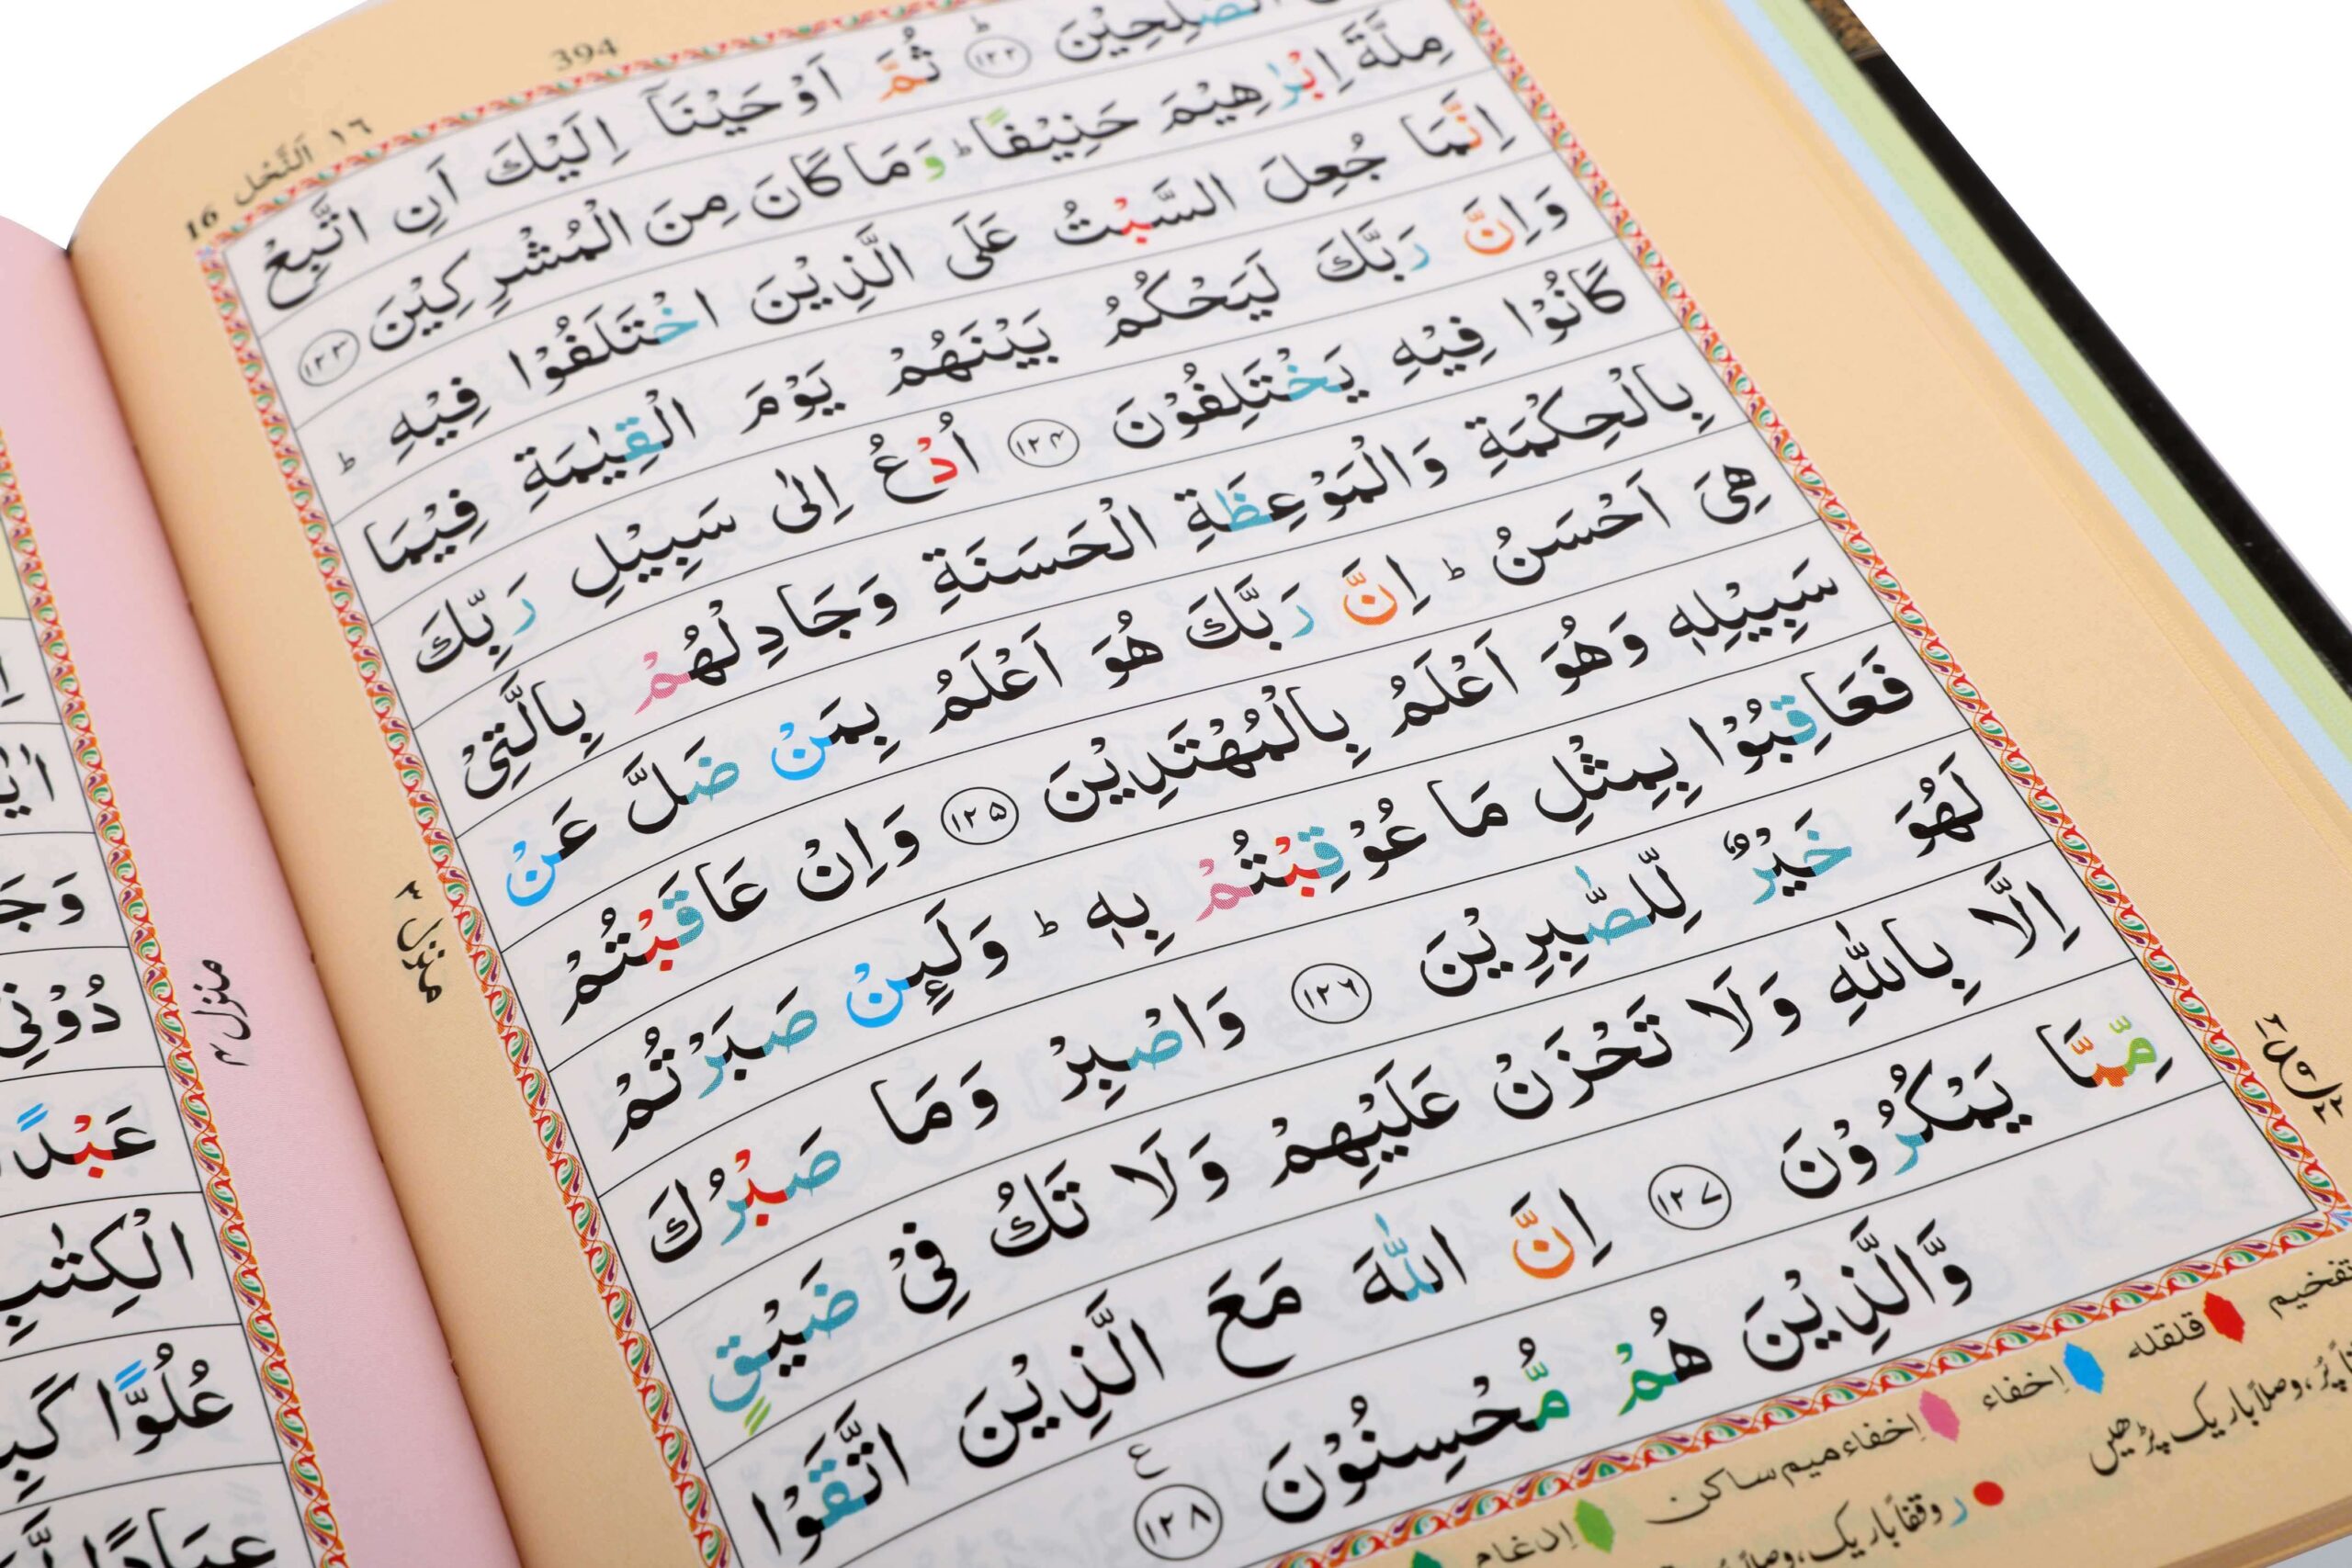 394
١٦ اَلنَّحْل 16
الصّٰلِحِيْنَ ؕ ﴿۱۲۲﴾ ثُمَّ اَوْحَيْنَاۤ اِلَيْكَ اَنِ اتَّبِعْ
مِلَّةَ اِبْرٰهِيْمَ حَنِيْفًا ؕ وَمَا كَانَ مِنَ الْمُشْرِكِيْنَ ﴿۱۲۳﴾
اِنَّمَا جُعِلَ السَّبْتُ عَلَى الَّذِيْنَ اخْتَلَفُوْا فِيْهِ ؕ
وَاِنَّ رَبَّكَ لَيَحْكُمُ بَيْنَهُمْ يَوْمَ الْقِيٰمَةِ فِيْمَا
كَانُوْا فِيْهِ يَخْتَلِفُوْنَ ﴿۱۲۴﴾ اُدْعُ اِلٰى سَبِيْلِ رَبِّكَ
بِالْحِكْمَةِ وَالْمَوْعِظَةِ الْحَسَنَةِ وَجَادِلْهُمْ بِالَّتِيْ
هِيَ اَحْسَنُ ؕ اِنَّ رَبَّكَ هُوَ اَعْلَمُ بِمَنْ ضَلَّ عَنْ
سَبِيْلِهٖ وَهُوَ اَعْلَمُ بِالْمُهْتَدِيْنَ ﴿۱۲۵﴾ وَاِنْ عَاقَبْتُمْ
فَعَاقِبُوْا بِمِثْلِ مَا عُوْقِبْتُمْ بِهٖ ؕ وَلَىِٕنْ صَبَرْتُمْ
لَهُوَ خَيْرٌ لِّلصّٰبِرِيْنَ ﴿۱۲۶﴾ وَاصْبِرْ وَمَا صَبْرُكَ
اِلَّا بِاللّٰهِ وَلَا تَحْزَنْ عَلَيْهِمْ وَلَا تَكُ فِيْ ضَيْقٍ
مِّمَّا يَمْكُرُوْنَ ﴿۱۲۷﴾ اِنَّ اللّٰهَ مَعَ الَّذِيْنَ اتَّقَوْا
وَّالَّذِيْنَ هُمْ مُّحْسِنُوْنَ ﴿۱۲۸﴾ ع
منزل ۳
تفخیم قلقله اِخفاء اِخفاء میم ساکن اِدغام
وصلاً باریک پڑھیں
ر وقفاً باریک، وصلاً
منزل ۴
وَجَ
دُوْنِيْ
عَبْدًا
الْكِتٰبِ
عُلُوًّا كَبِ
عِبَادًا